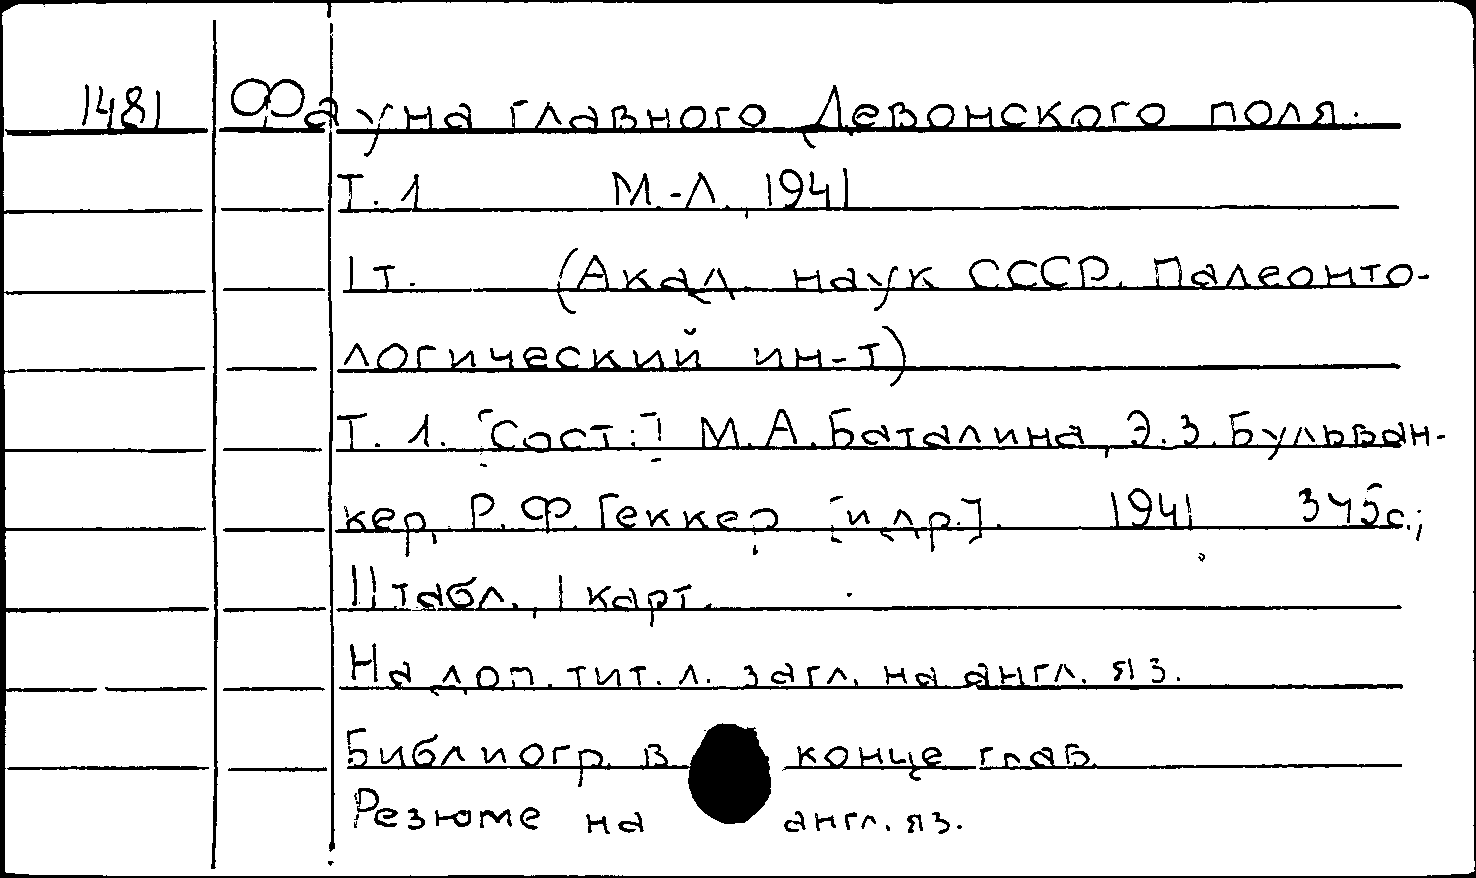 1481 Фауна главного Девонского поля.
Т. 1 М.-Л., 1941
1 т. (Акад. наук СССР. Палеонто-
логический ин-т)
Т. 1. [Сост.:] М.А. Баталина, Э.З. Бульван-
кер, Р.Ф. Геккер [и др.]. 1941 345 с.;
11 табл., 1 карт.
На доп. тит. л. загл. на англ. яз.
Библиогр. в конце глав
Резюме на англ. яз.